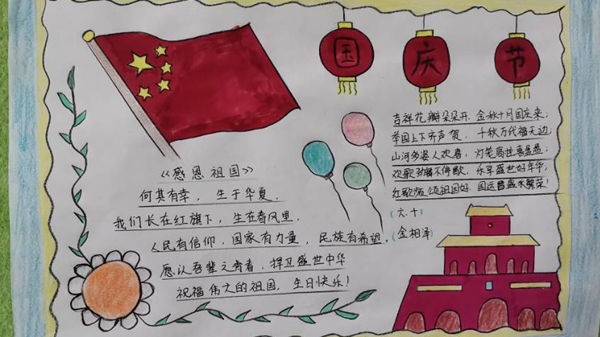 国庆节
《感恩祖国》
何其有幸，生于华夏.
我们长在红旗下，生在春风里.
人民有信仰，国家有力量，民族有希望.
愿以吾辈之青春，捍卫盛世中华
祝福伟大的祖国，生日快乐！
吉祥花瓣朵朵开，金秋十月国庆来；
举国上下齐声贺，千秋万代福无边；
山河多娇人欢喜，灯笼高挂喜盈盈；
欢歌劲舞不停歇，乐享盛世好年华，
红歌颂祖国好，国运昌盛永繁荣！
（六.十）
金相泽